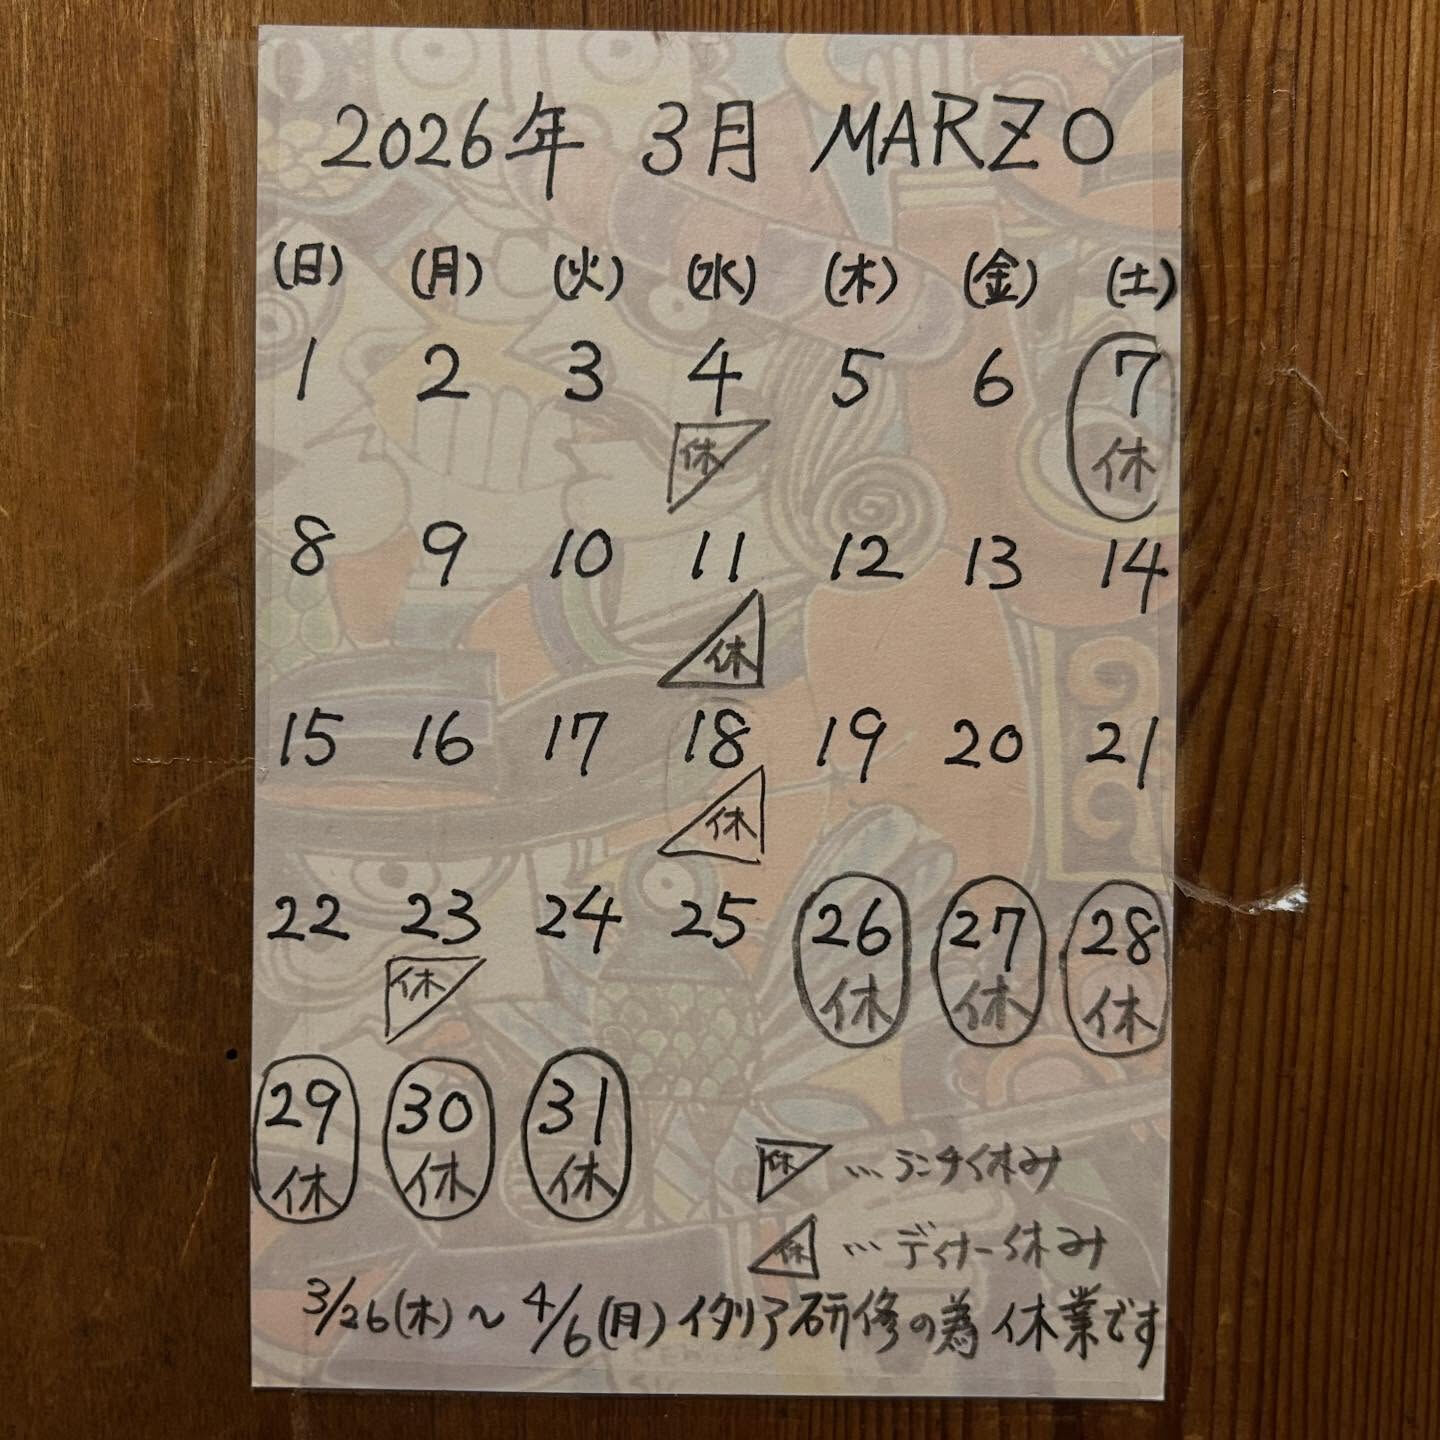 2026年 3月 MARZO
(日) (月) (火) (水) (木) (金) (土)
1 2 3 4 5 6 7
休 休
8 9 10 11 12 13 14
休
15 16 17 18 19 20 21
休
22 23 24 25 26 27 28
休 休 休 休
29 30 31
休 休 休
休 … ランチ休み
休 … ディナー休み
3/26(木)～4/6(月)イタリア研修の為休業です